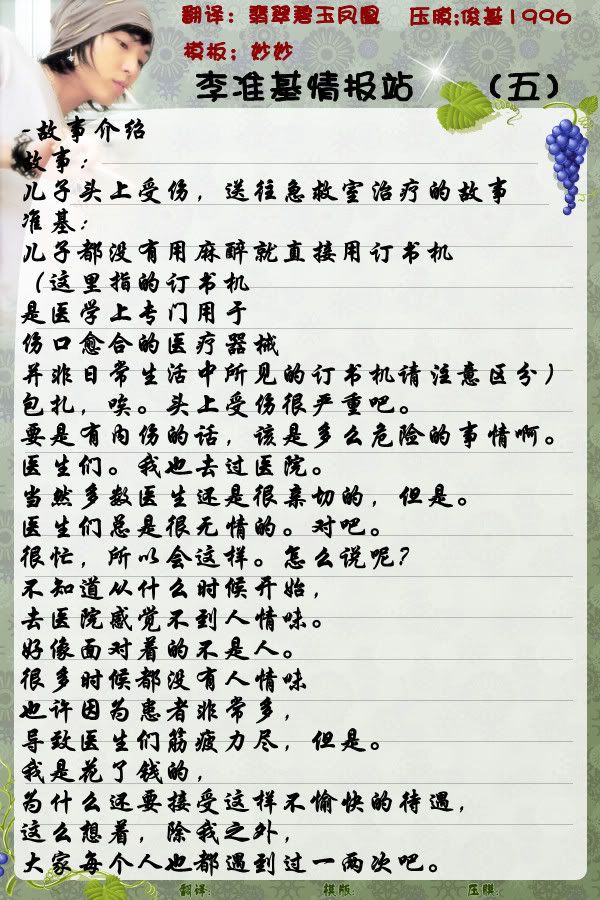 翻译：翡翠碧玉凤凰 压膜;俊基1996
模板；妙妙
李准基情报站 （五）
-故事介绍
故事：
儿子头上受伤，送往急救室治疗的故事
准基：
儿子都没有用麻醉就直接用订书机
（这里指的订书机
是医学上专门用于
伤口愈合的医疗器械
并非日常生活中所见的订书机请注意区分）
包扎，唉。头上受伤很严重吧。
要是有内伤的话，该是多么危险的事情啊。
医生们。我也去过医院。
当然多数医生还是很亲切的，但是。
医生们总是很无情的。对吧。
很忙，所以会这样。怎么说呢？
不知道从什么时候开始，
去医院感觉不到人情味。
好像面对着的不是人。
很多时候都没有人情味
也许因为患者非常多，
导致医生们筋疲力尽，但是。
我是花了钱的，
为什么还要接受这样不愉快的待遇，
这么想着，除我之外，
大家每个人也都遇到过一两次吧。
翻译： 模版： 压膜：